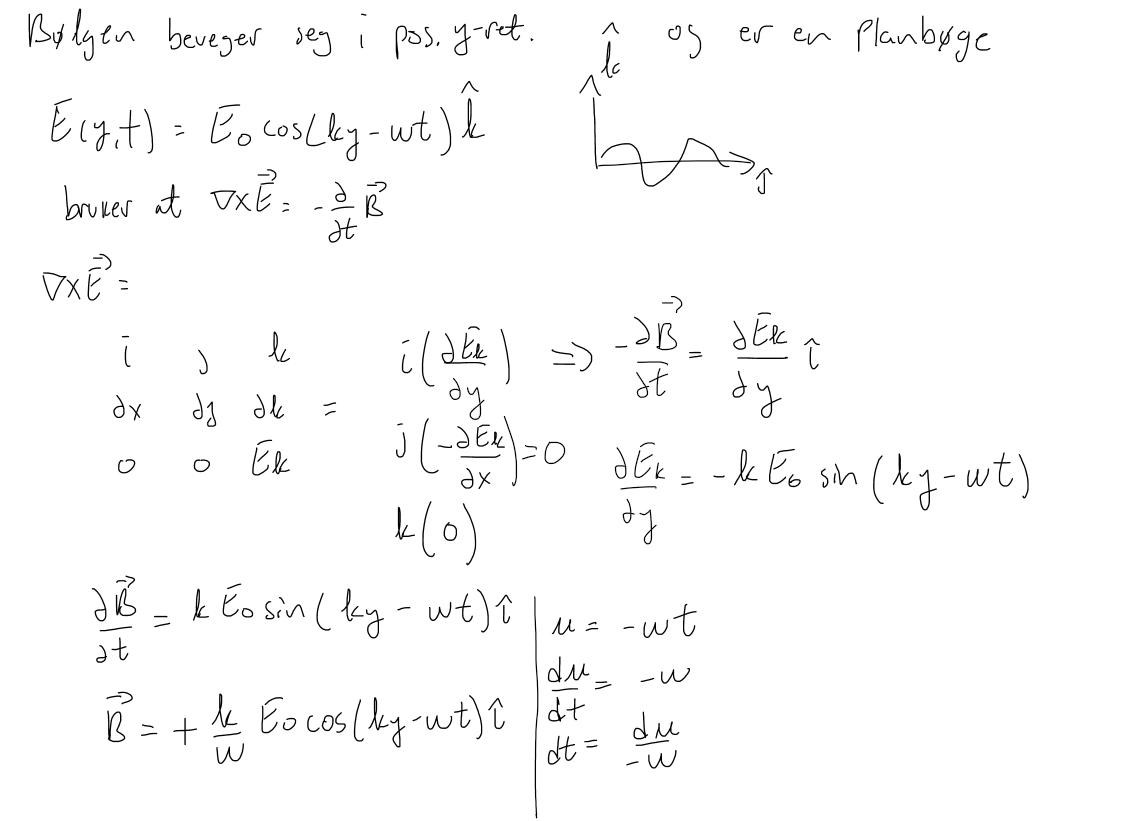 Bølgen beveger seg i pos. y-ret. k̂ og er en Planbøge
Ē(y,t) = Ē₀ cos(ky - wt) k̂
ĵ
bruker at ∇x E⃗ = - ∂/∂t B⃗
∇x E⃗ =
i j k
∂x ∂y ∂k =
0 0 Ēk
i(∂Ēk/∂y) => -∂B⃗/∂t = ∂Ēk/∂y î
j(-∂Ēk/∂x) = 0
k(0)
∂Ēk/∂y = - k Ē₀ sin(ky - wt)
∂B⃗/∂t = k Ē₀ sin(ky - wt) î
B⃗ = + k/w Ē₀ cos(ky - wt) î
u = -wt
du/dt = -w
dt = du/-w